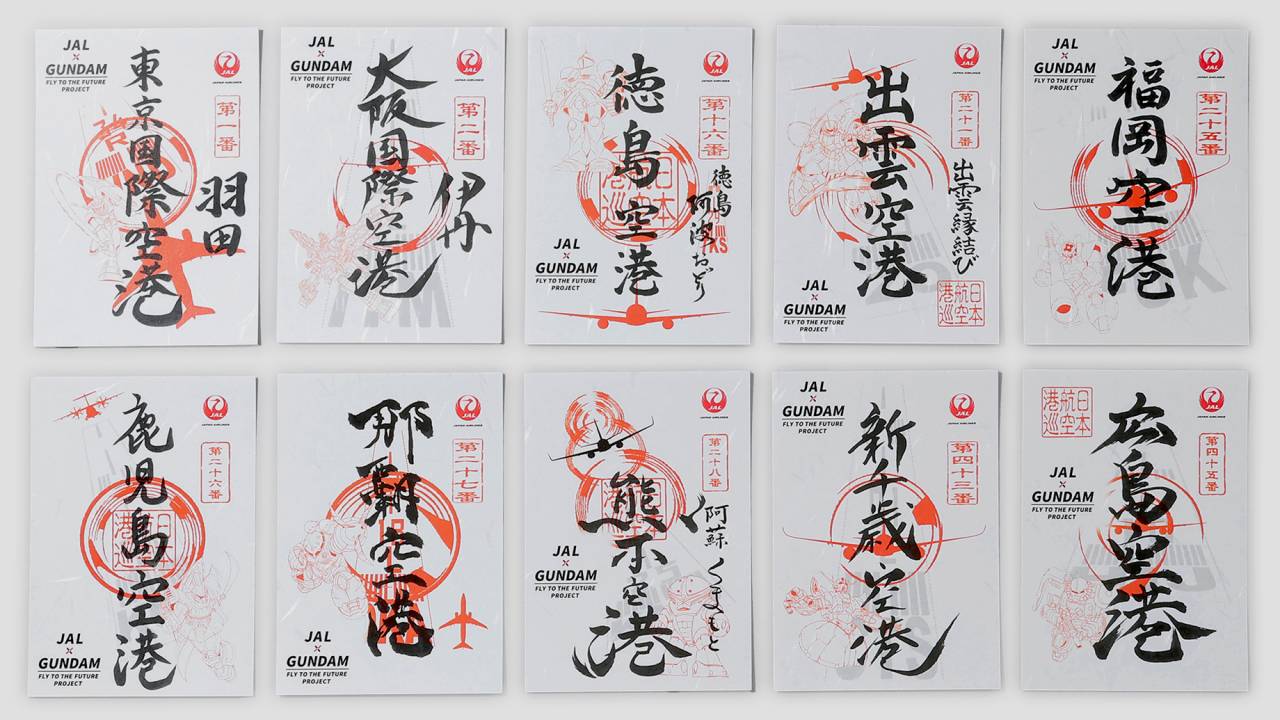 JAL
×
GUNDAM
FLY TO THE FUTURE
PROJECT
JAL
JAPAN AIRLINES
第一番
東京国際空港
羽田
JAL
×
GUNDAM
FLY TO THE FUTURE
PROJECT
JAL
JAPAN AIRLINES
第二番
大阪国際空港
伊丹
JAL
JAPAN AIRLINES
第十六番
徳島空港
徳島
阿波おどり
日本
航空
港巡
JAL
×
GUNDAM
FLY TO THE FUTURE
PROJECT
JAL
JAPAN AIRLINES
第二十一番
出雲空港
出雲縁結び
JAL
×
GUNDAM
FLY TO THE FUTURE
PROJECT
日本
航空
港巡
JAL
×
GUNDAM
FLY TO THE FUTURE
PROJECT
JAL
JAPAN AIRLINES
第二十五番
福岡空港
JAL
JAPAN AIRLINES
第二十六番
鹿児島空港
JAL
×
GUNDAM
FLY TO THE FUTURE
PROJECT
JAL
JAPAN AIRLINES
第二十七番
那覇空港
JAL
×
GUNDAM
FLY TO THE FUTURE
PROJECT
JAL
JAPAN AIRLINES
第二十八番
熊本空港
阿蘇くまもと
JAL
×
GUNDAM
FLY TO THE FUTURE
PROJECT
JAL
×
GUNDAM
FLY TO THE FUTURE
PROJECT
JAL
JAPAN AIRLINES
第四十三番
新千歳空港
日本
航空
港巡
JAL
JAPAN AIRLINES
第四十五番
広島空港
JAL
×
GUNDAM
FLY TO THE FUTURE
PROJECT